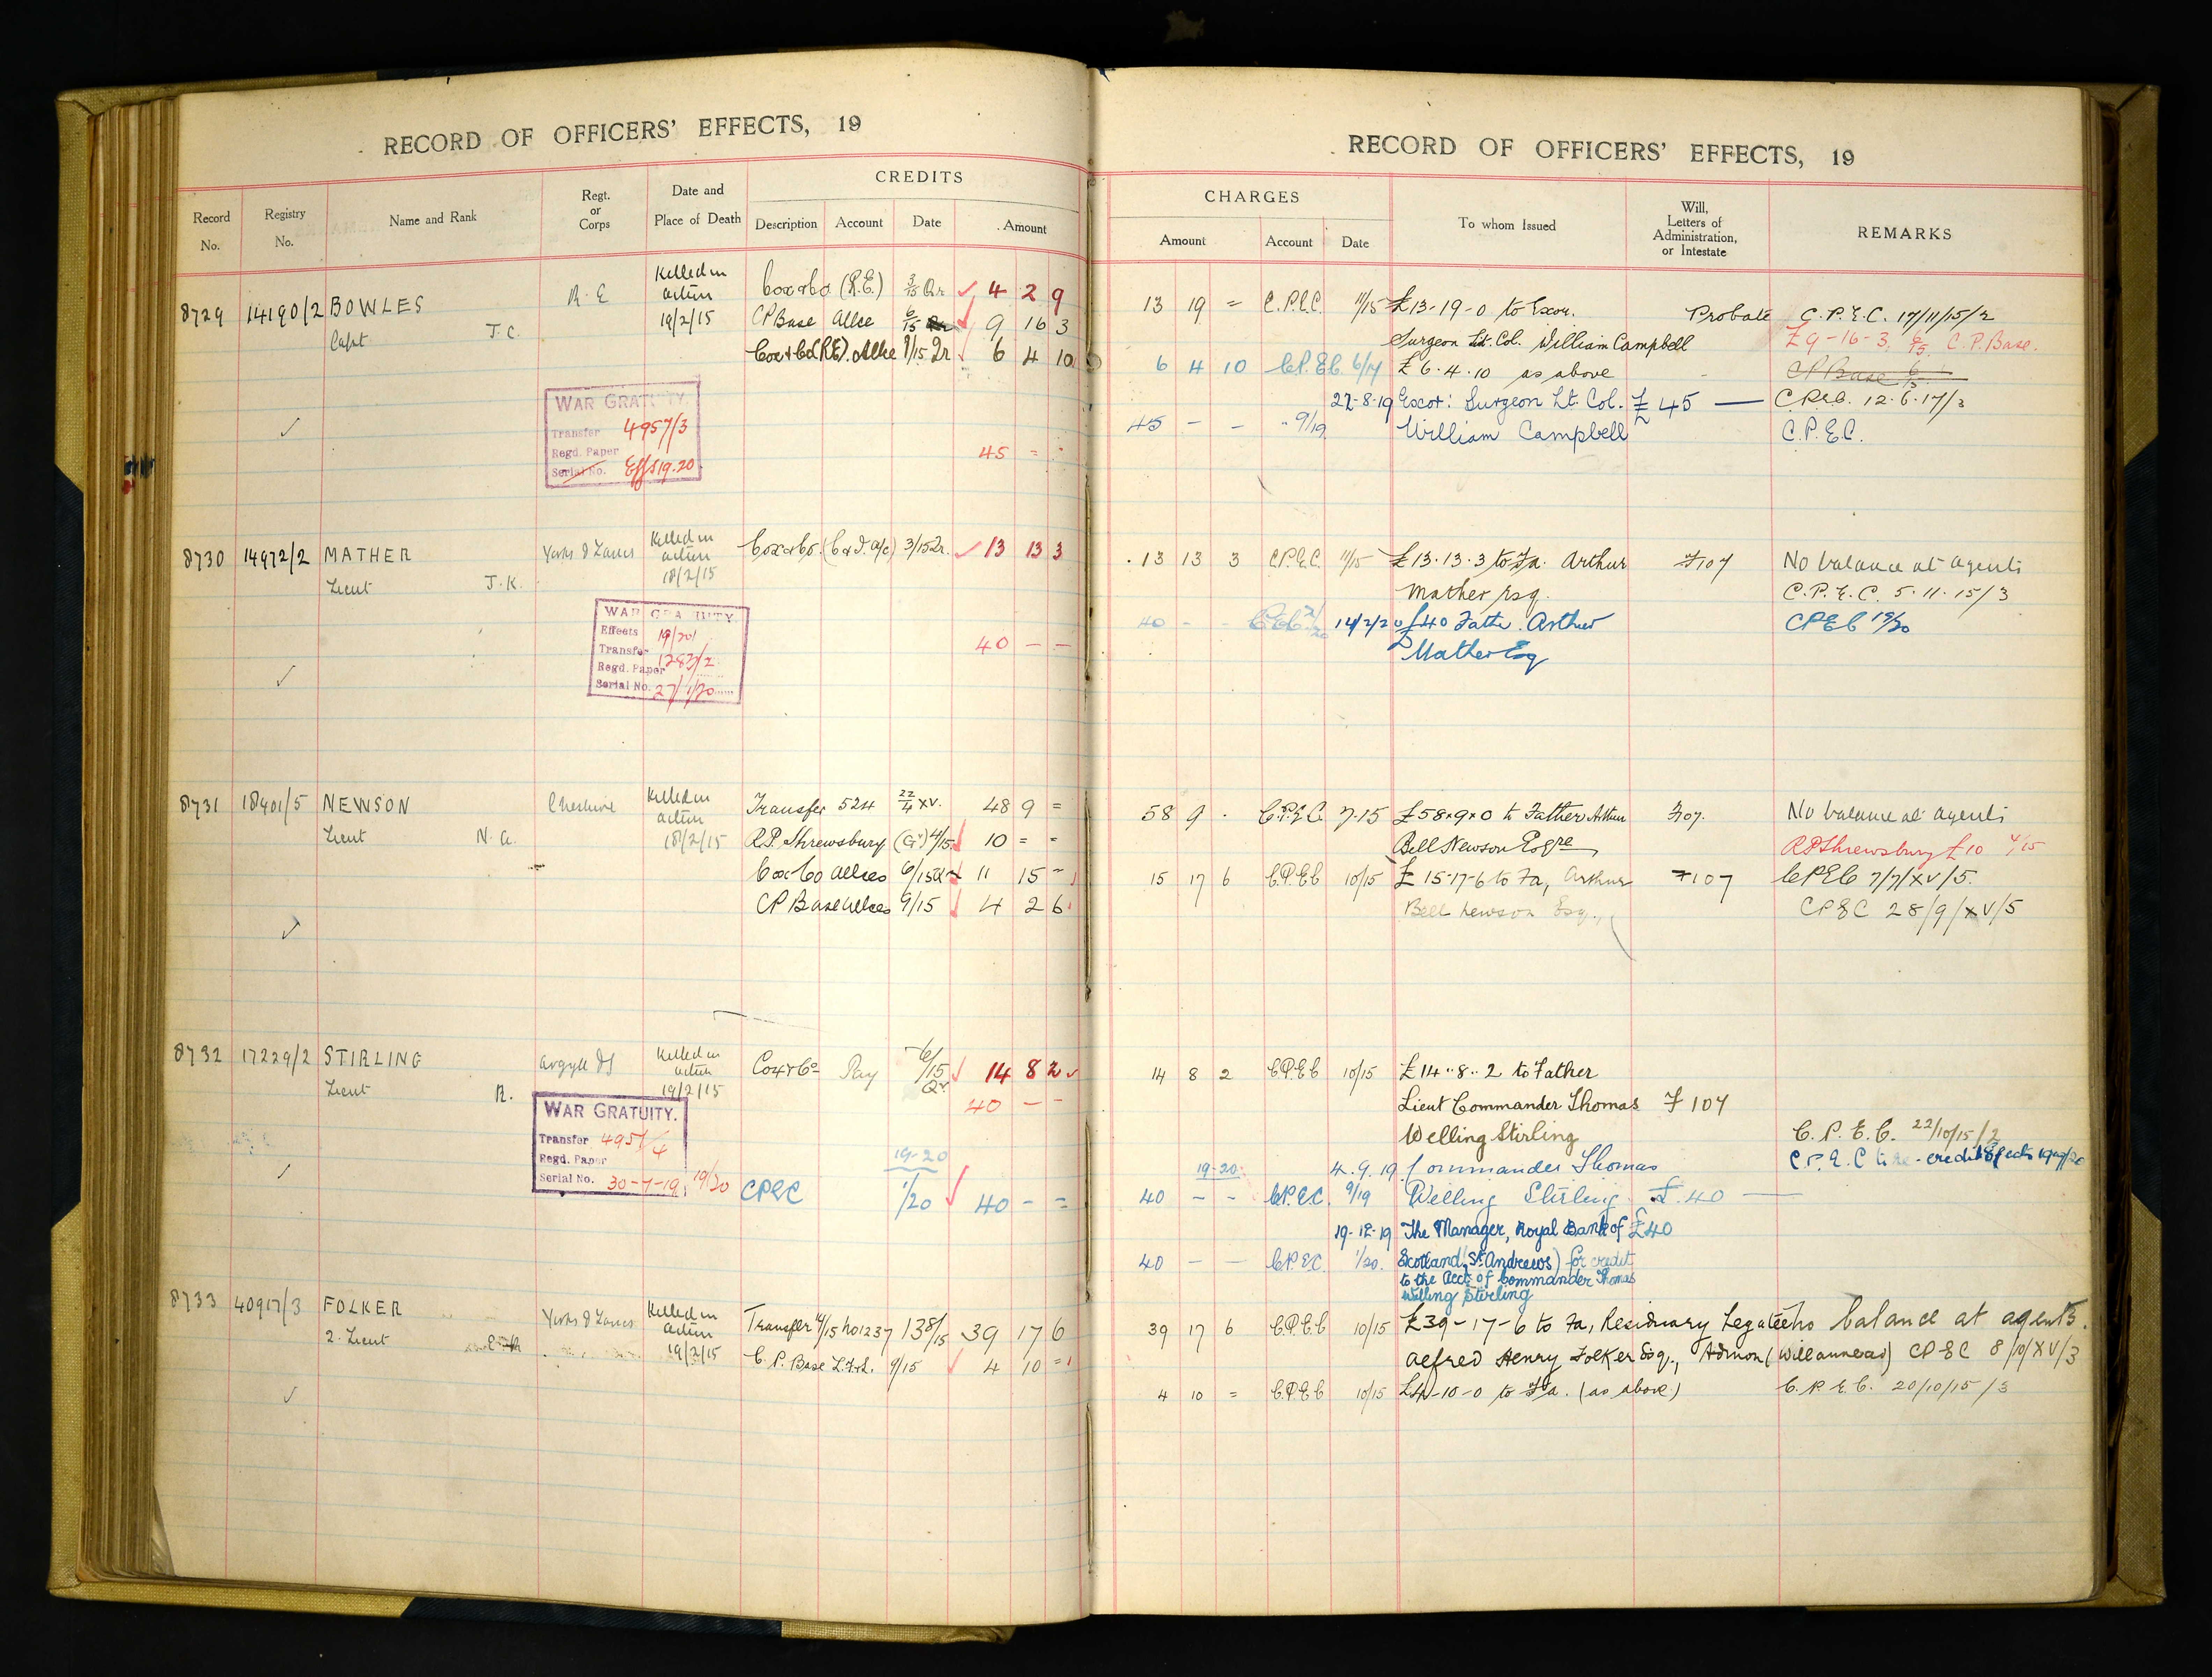 RECORD OF OFFICERS' EFFECTS, 19
Record No. Registry No. Name and Rank Regt. or Corps Date and Place of Death CREDITS Description Account Date Amount
8729 14190/2 BOWLES R.E Killed in action 19/2/15 Cox & Co (R.E.) 3/15 Qr 4 2 9
Capt J.C. CP Base Allce 6/15 9 16 3
Cox & Co (RE). Allce 9/15 Qr 6 4 10
WAR GRATUITY.
Transfer 4957/3
Regd. Paper
Serial No. Effs 19.20
45 = 
8730 14972/2 MATHER Yorks & Lancs Killed in action 18/2/15 Cox & Co. 3/15 Qr. 13 13 3
Lieut J.K.
WAR GRATUITY
Effects 19/20
Transfer 1283/2
Regd. Paper
Serial No. 27/1/20
40 - -
8731 18401/5 NEWSON Cheshire Killed in action 18/2/15 Transfer 524 22/4 XV. 48 9 =
Lieut N.A. R.P. Shrewsbury (Gy) 4/15 10 = =
Cox & Co Allces 6/15 Qr 11 15 -
CP Base Allces 9/15 4 2 6
8732 17229/2 STIRLING Argyll & S Killed in action 19/2/15 Cox & Co Pay 6/15 Qr 14 8 2
Lieut R. 40 - -
WAR GRATUITY.
Transfer 4957/4
Regd. Paper
Serial No. 30-7-19. 19/20
19-20
CPEC 1/20 40 - =
8733 40917/3 FOLKER Yorks & Lancs Killed in action 19/2/15 Transfer 4/15 No 1237 39 17 6
2. Lieut C.P. Base 9/15 4 10 =
RECORD OF OFFICERS' EFFECTS, 19
CHARGES Amount Account Date To whom Issued Will, Letters of Administration, or Intestate REMARKS
13 19 = C.P.E.C. 11/15 £13-19-0 to Exor. Probate C.P.E.C. 17/11/15/2
Surgeon Lt. Col. William Campbell £9-16-3. 6/15 C.P. Base.
6 4 10 C.P.E.C. 6/17 £6.4.10 as above CP Base 6/15
22-8-19 Exor: Surgeon Lt. Col. £45 — CPEC. 12.6.17/3
45 - - " 9/19 William Campbell C.P.E.C.
13 13 3 C.P.E.C. 11/15 £13.13.3 to Fa. Arthur F107 No balance at agents
Mather Esq. C.P.E.C. 5.11.15/3
40 - - CPEC 2/20 14/2/20 £40 Father. Arthur CPEC 19/20
Mather Esq
58 9 . C.P.E.C. 7.15 £58×9×0 to Father Arthur F107. No balance at agents
Bell Newson Esqre RP Shrewsbury £10 4/15
15 17 6 C.P.E.C 10/15 £15-17-6 to Fa, Arthur F107 CPEC 7/7/XV/5.
Bell Newson Esq., CPEC 28/9/XV/5
14 8 2 C.P.E.C 10/15 £14..8..2 to Father
Lieut Commander Thomas F 104
Welling Stirling C.P.E.C. 22/10/15/2
19-20. 4.9.19 Commander Thomas C.P.E.C to re-credit Effects 1919/20
40 - - C.P.E.C. 9/19 Welling Stirling. £40 —
19-12-19 The Manager, Royal Bank of £40
40 - - C.P.E.C. 1/20. Scotland (St. Andrews) for credit
to the acct of Commander Thomas
Welling Stirling
39 17 6 C.P.E.C 10/15 £39-17-6 to Fa, Residuary Legatee No balance at agents.
Alfred Henry Folker Esq., Admon (Will annexed) CPEC 8/10/XV/3
4 10 = C.P.E.C 10/15 £4-10-0 to Fa. (as above) C.P.E.C. 20/10/15/3